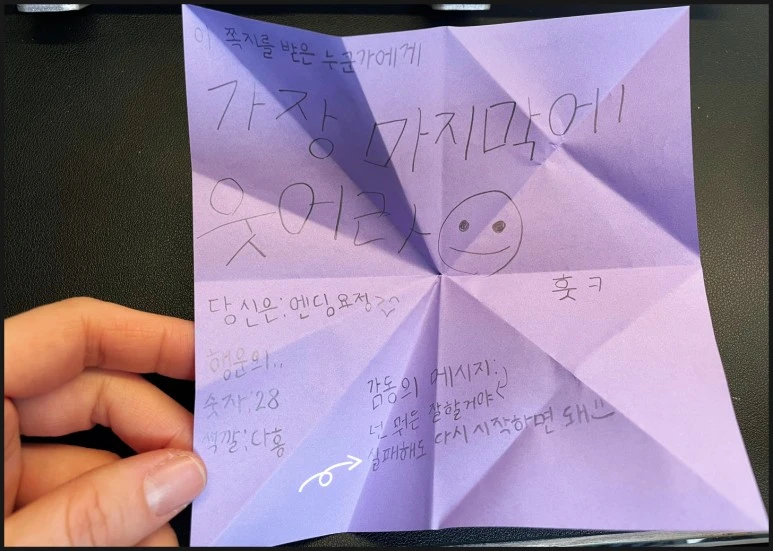 이 쪽지를 받은 누군가에게
가장 마지막에!!
웃어라
훗ㅋ
당신은:엔딩요정
행운의..
숫자:28
색깔:다홍
감동의 메시지:)
넌 뭐든 잘할거야
실패해도 다시 시작하면 돼!!